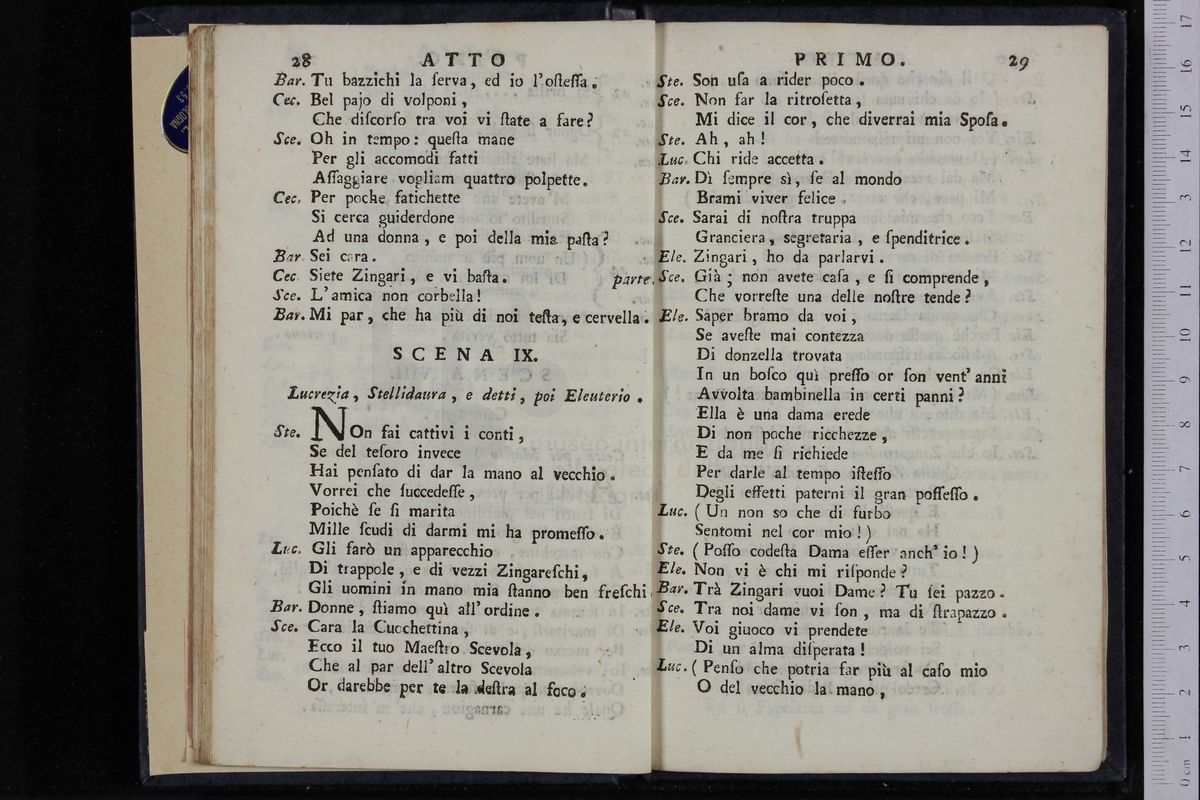 28 ATTO
Bar. Tu bazzichi la ſerva, ed io l'oſteſſa.
Cec. Bel pajo di volponi,
Che diſcorſo tra voi vi ſtate a fare?
Sce. Oh in tempo: queſta mane
Per gli accomodi fatti
Aſſaggiare vogliam quattro polpette.
Cec. Per poche fatichette
Si cerca guiderdone
Ad una donna, e poi della mia paſta?
Bar Sei cara.
Cec Siete Zingari, e vi baſta. parte.
Sce. L'amica non corbella!
Bar. Mi par, che ha più di noi teſta, e cervella.
SCENA IX.
Lucrezia, Stellidaura, e detti, poi Eleuterio.
Ste. NOn fai cattivi i conti,
Se del teſoro invece
Hai penſato di dar la mano al vecchio.
Vorrei che ſuccedeſſe,
Poichè ſe ſi marita
Mille ſcudi di darmi mi ha promeſſo.
Luc. Gli farò un apparecchio
Di trappole, e di vezzi Zingareſchi,
Gli uomini in mano mia ſtanno ben freſchi.
Bar. Donne, ſtiamo quì all'ordine.
Sce. Cara la Cucchettina,
Ecco il tuo Maeſtro Scevola,
Che al par dell'altro Scevola
Or darebbe per te la deſtra al foco.
PRIMO. 29
Ste. Son uſa a rider poco.
Sce. Non far la ritroſetta,
Mi dice il cor, che diverrai mia Spoſa.
Ste. Ah, ah!
Luc. Chi ride accetta.
Bar. Dì ſempre sì, ſe al mondo
Brami viver felice.
Sce. Sarai di noſtra truppa
Granciera, segretaria, e ſpenditrice.
Ele. Zingari, ho da parlarvi.
Sce. Già; non avete caſa, e ſi comprende,
Che vorreſte una delle noſtre tende?
Ele. Saper bramo da voi,
Se aveſte mai contezza
Di donzella trovata
In un boſco quì preſſo or ſon vent'anni
Avvolta bambinella in certi panni?
Ella è una dama erede
Di non poche ricchezze,
E da me ſi richiede
Per darle al tempo iſteſſo
Degli effetti paterni il gran poſſeſſo.
Luc. (Un non so che di furbo
Sentomi nel cor mio!)
Ste. (Poſſo codeſta Dama eſſer anch'io!)
Ele. Non vi è chi mi riſponde?
Bar. Trà Zingari vuoi Dame? Tu ſei pazzo.
Sce. Tra noi dame vi ſon, ma di ſtrapazzo.
Ele. Voi giuoco vi prendete
Di un alma diſperata!
Luc. (Penſo che potria far più al caſo mio
O del vecchio la mano,